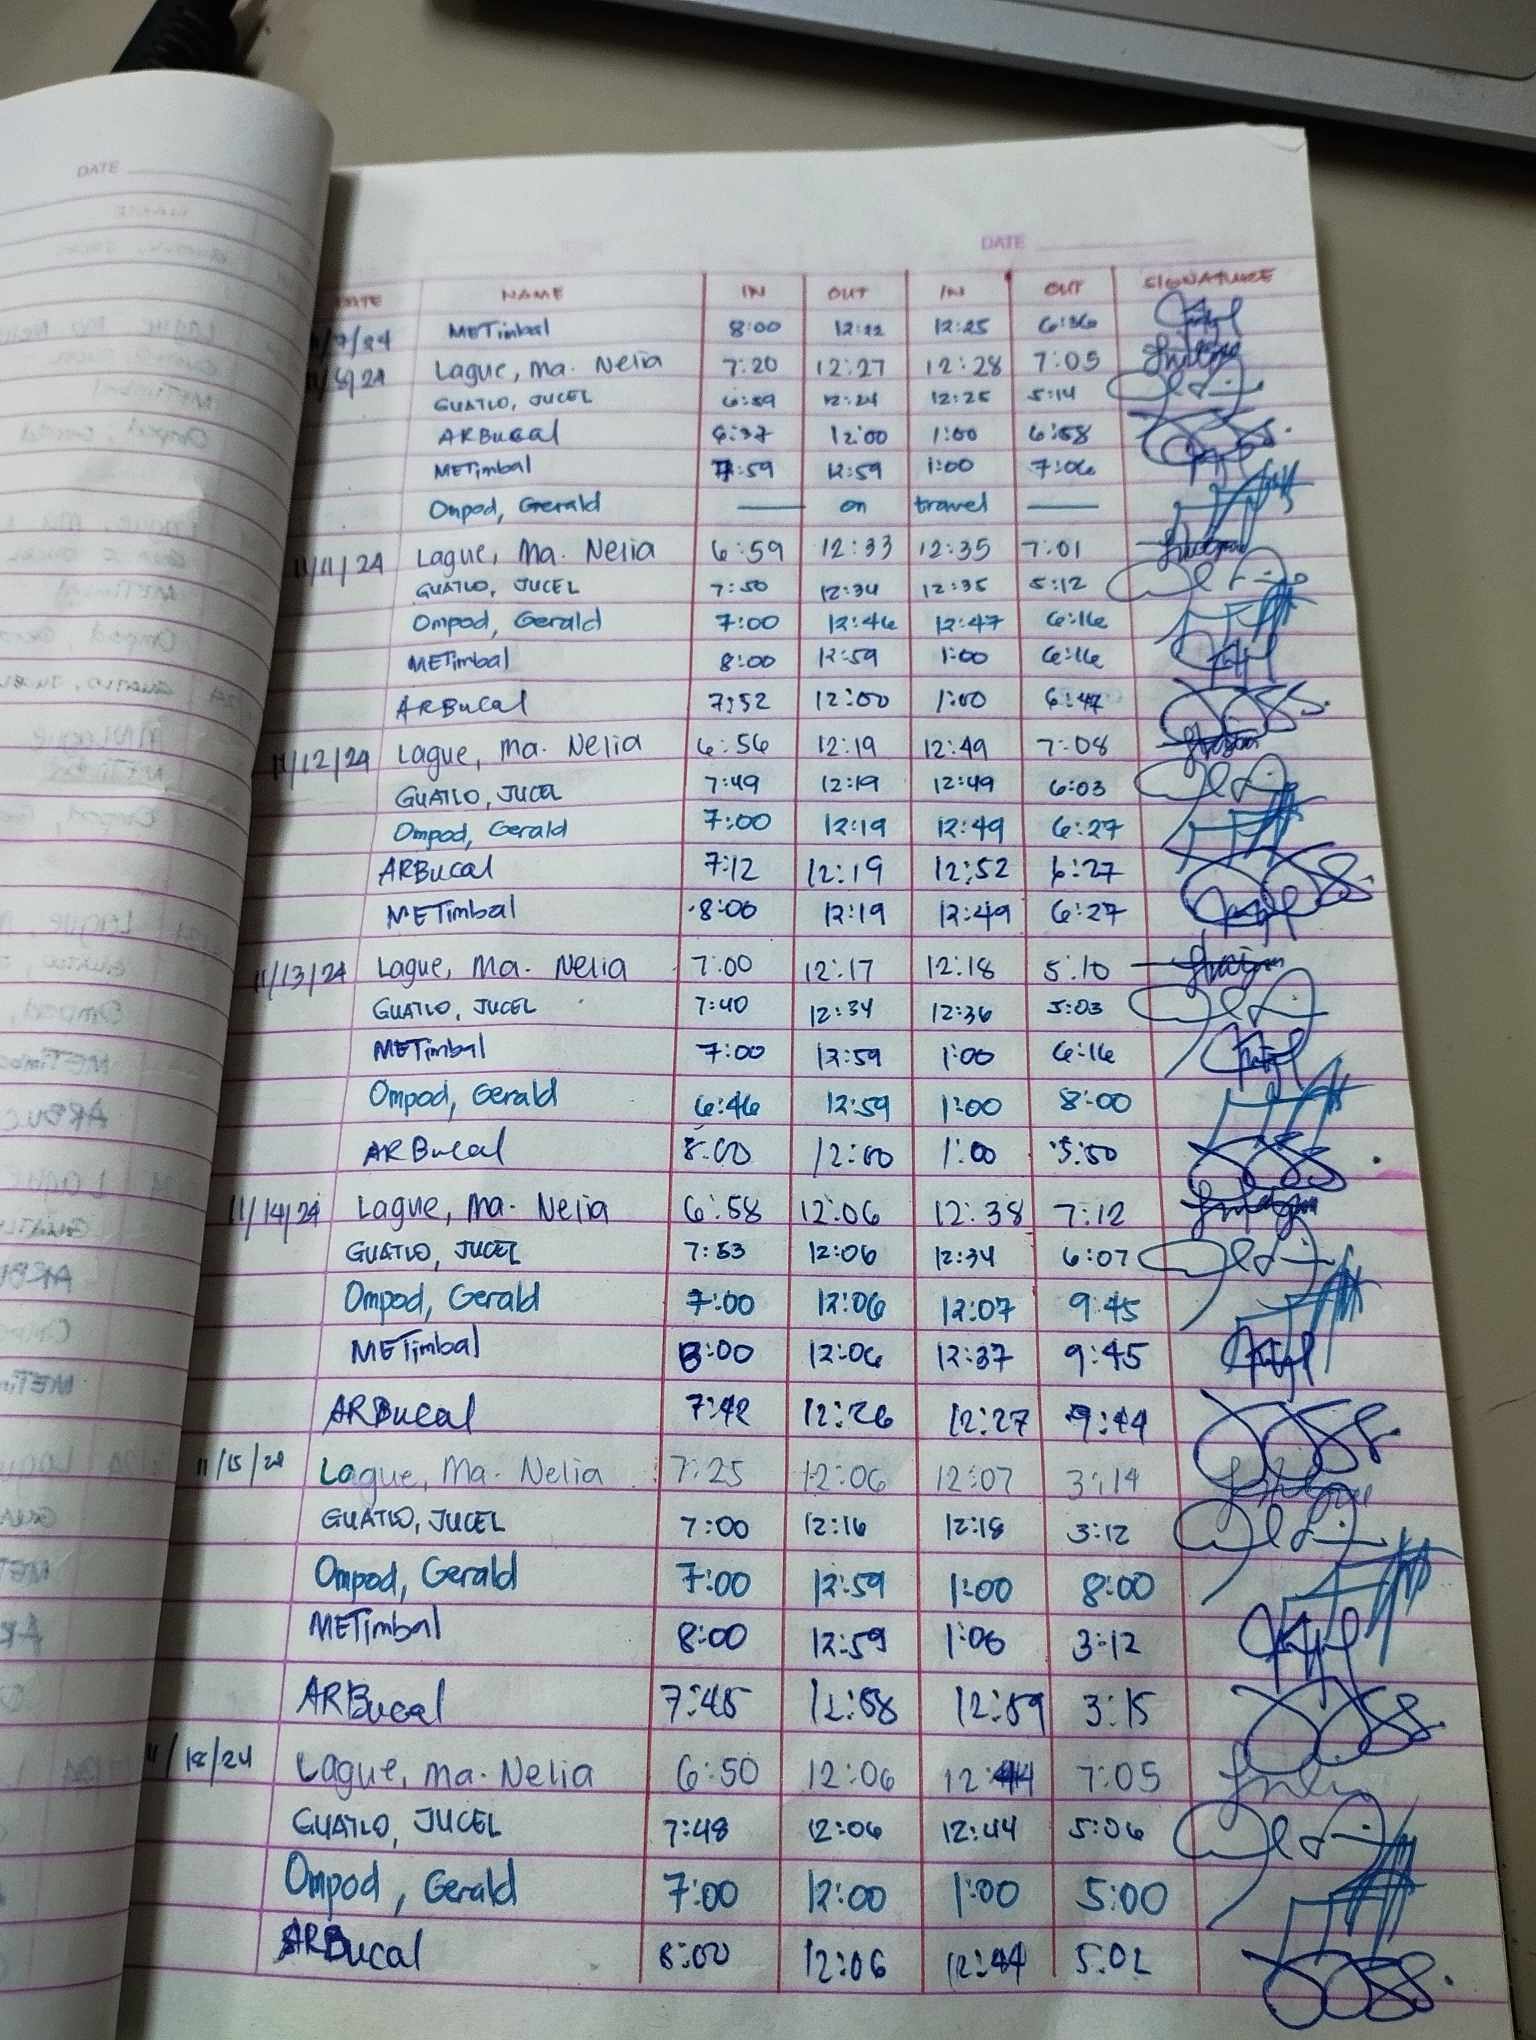 DATE
DATE
DATE NAME IN OUT IN OUT SIGNATURE
/7/24 METimbal 8:00 12:22 12:25 6:36
Lague, Ma. Nelia 7:20 12:27 12:28 7:05
GUATLO, JUCEL 6:59 12:24 12:25 5:14
ARBucal 6:37 12:00 1:00 6:58
METimbal 7:59 12:59 1:00 7:06
Ompod, Gerald — on travel —
11/11/24 Lague, Ma. Nelia 6:59 12:33 12:35 7:01
GUATLO, JUCEL 7:50 12:34 12:35 5:12
Ompod, Gerald 7:00 12:46 12:47 6:16
METimbal 8:00 12:59 1:00 6:16
ARBucal 7:52 12:00 1:00 6:47
11/12/24 Lague, Ma. Nelia 6:56 12:19 12:49 7:08
GUATLO, JUCEL 7:49 12:19 12:49 6:03
Ompod, Gerald 7:00 12:19 12:49 6:27
ARBucal 7:12 12:19 12:52 6:27
METimbal 8:00 12:19 12:49 6:27
11/13/24 Lague, Ma. Nelia 7:00 12:17 12:18 5:10
GUATLO, JUCEL 7:40 12:34 12:36 5:03
METimbal 7:00 12:59 1:00 6:16
Ompod, Gerald 6:46 12:59 1:00 8:00
ARBucal 8:00 12:00 1:00 5:50
11/14/24 Lague, Ma. Nelia 6:58 12:06 12:38 7:12
GUATLO, JUCEL 7:53 12:06 12:34 6:07
Ompod, Gerald 7:00 12:06 12:07 9:45
METimbal 8:00 12:06 12:37 9:45
ARBucal 7:42 12:26 12:27 9:44
11/15/24 Lague, Ma. Nelia 7:25 12:06 12:07 3:14
GUATLO, JUCEL 7:00 12:16 12:18 3:12
Ompod, Gerald 7:00 12:59 1:00 8:00
METimbal 8:00 12:59 1:00 3:12
ARBucal 7:45 12:58 12:59 3:15
11/18/24 Lague, Ma. Nelia 6:50 12:06 12:44 7:05
GUATLO, JUCEL 7:48 12:06 12:44 5:06
Ompod, Gerald 7:00 12:00 1:00 5:00
ARBucal 8:00 12:06 12:44 5:02